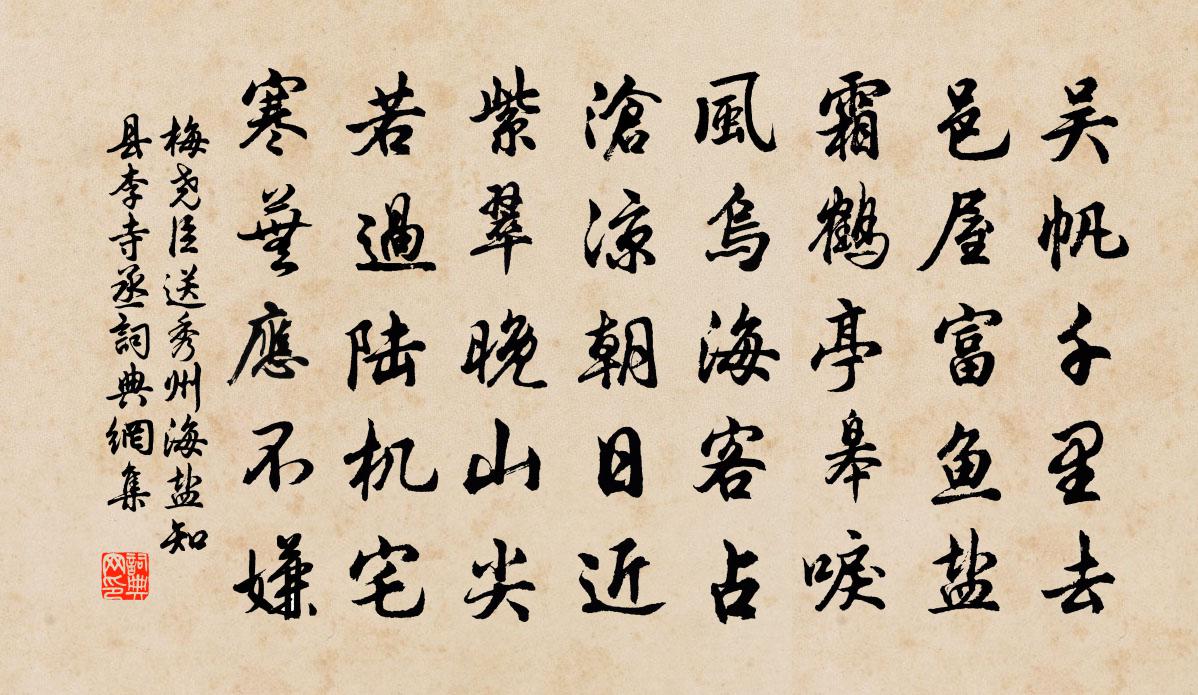 吴帆千里去
邑屋富鱼盐
霜鶴亭皋唳
風烏海客占
滄凉朝日近
紫翠晚山尖
若過陆机宅
寒蕪應不嫌
梅尧臣送秀州海盐知
县李寺丞詞典網集
詞典
网印